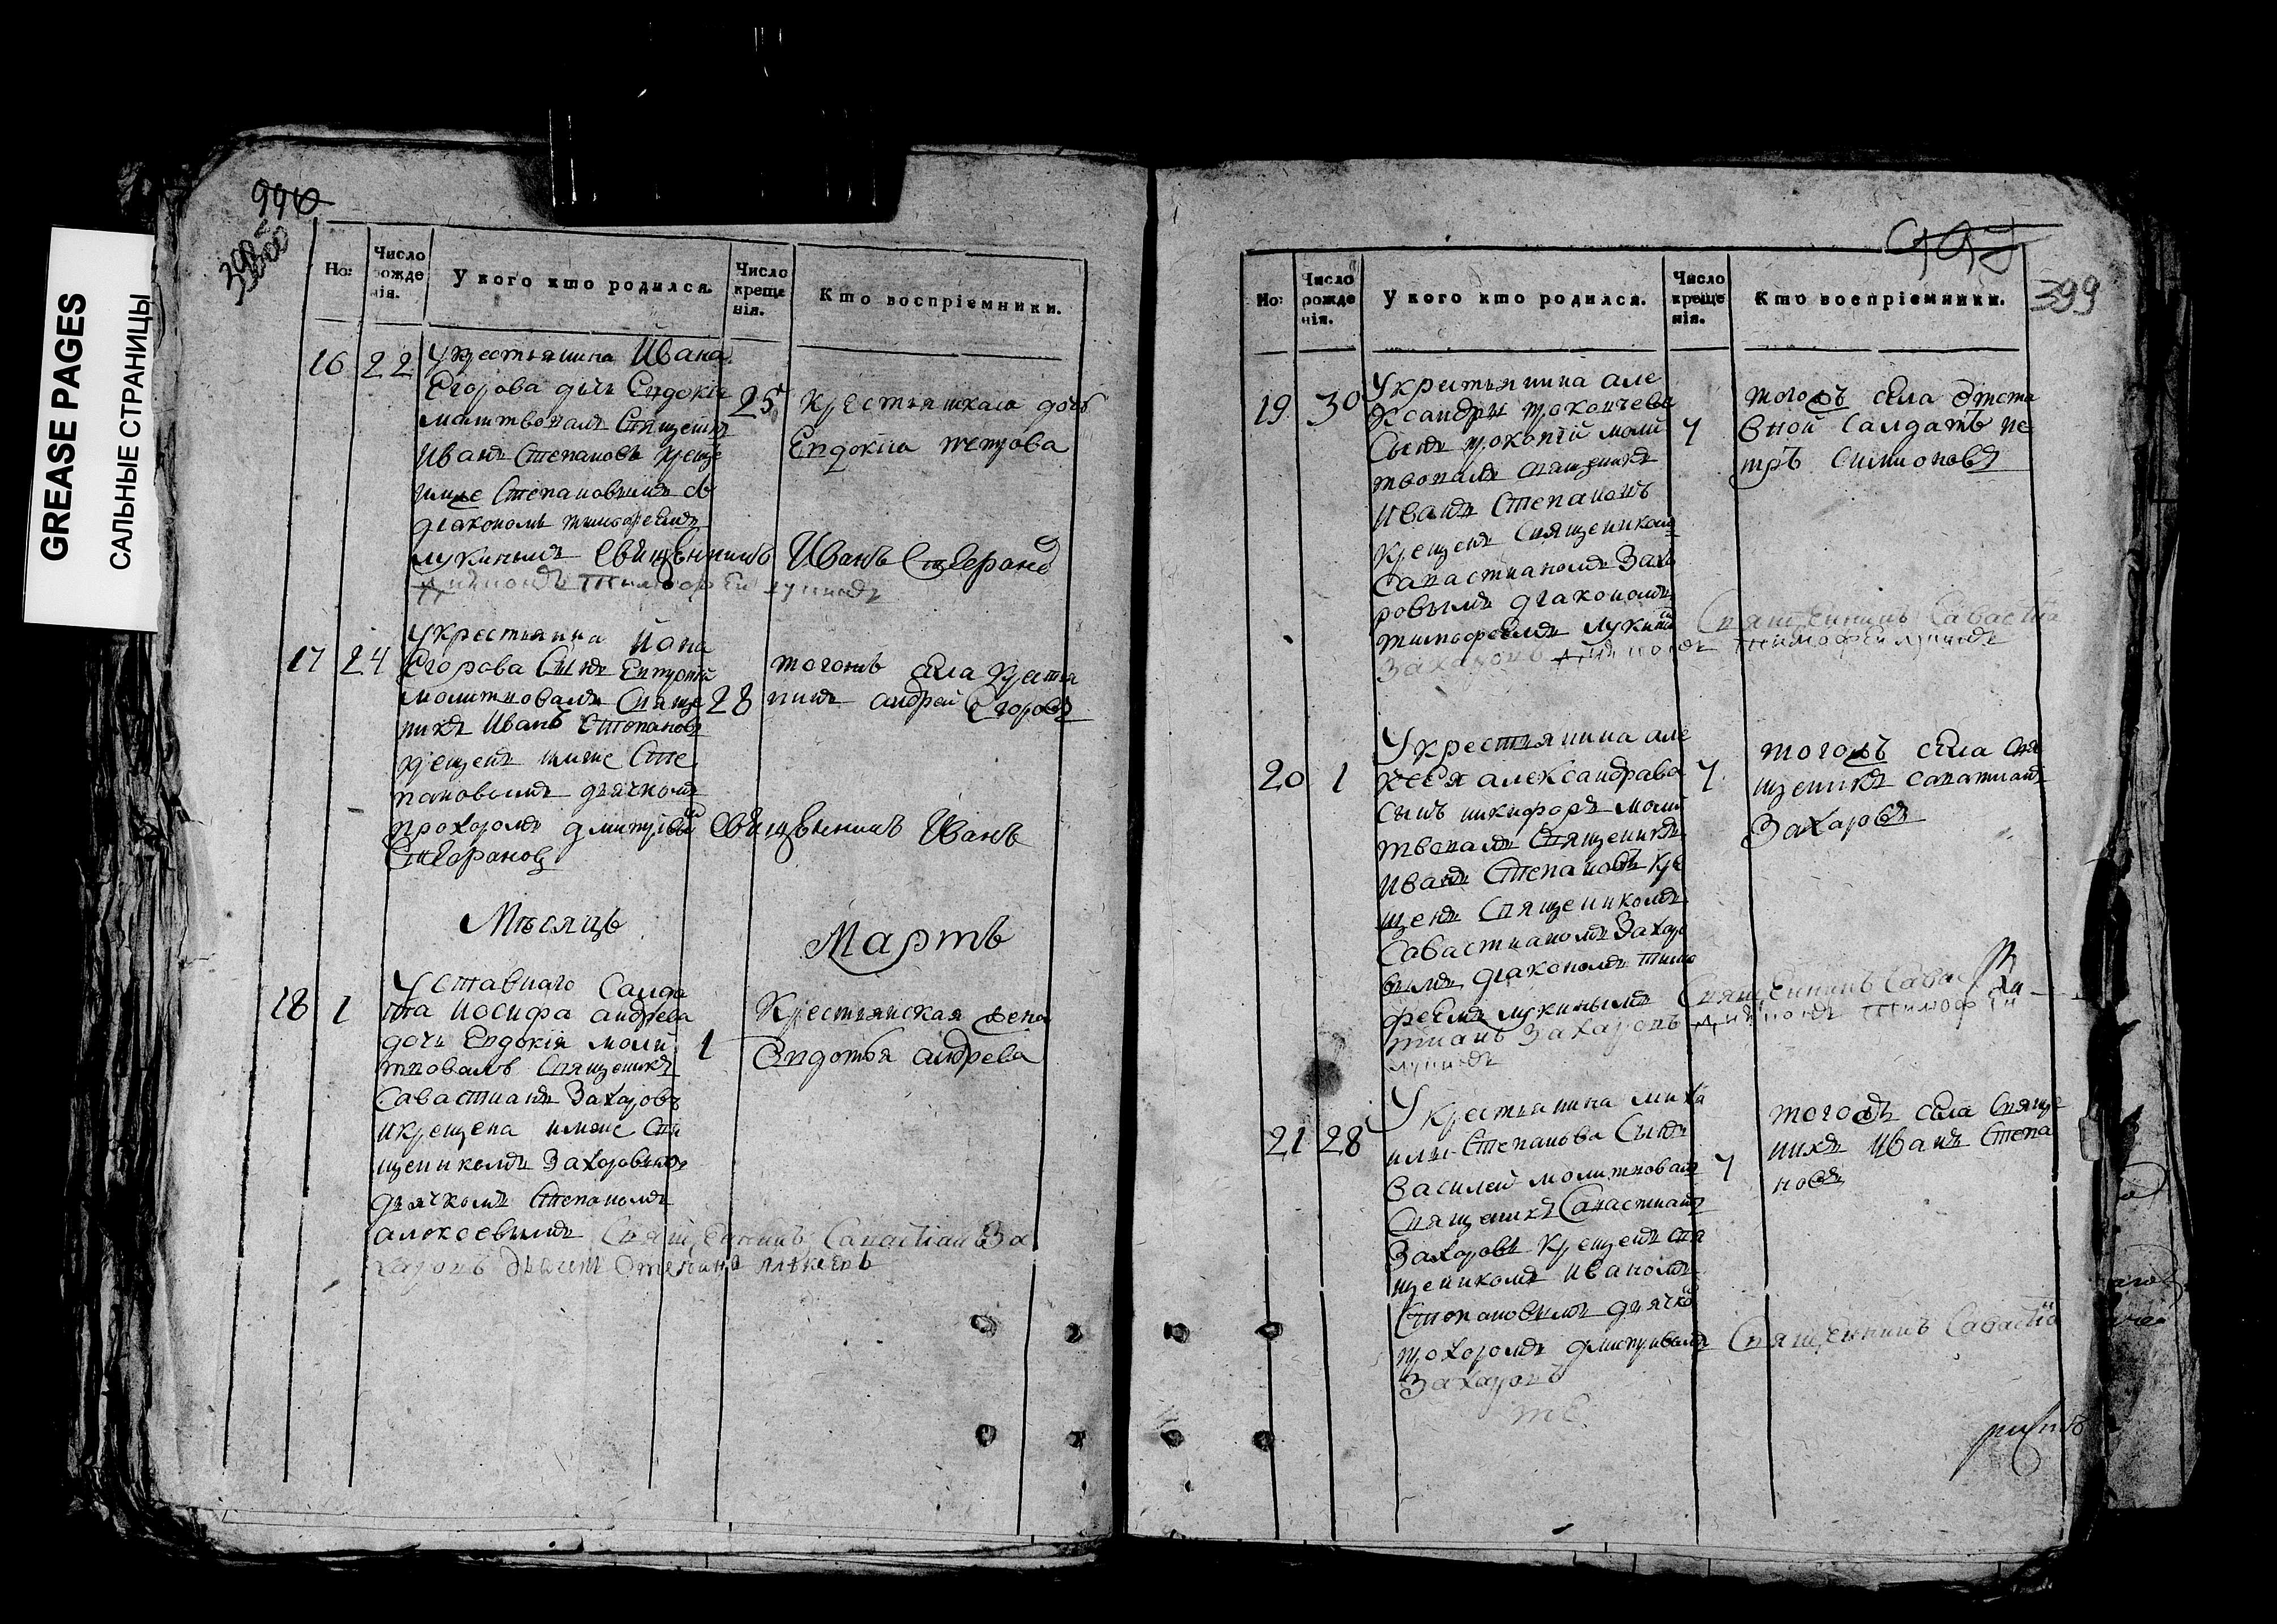 GREASE PAGES
САЛЬНЫЕ СТРАНИЦЫ
Но:
Число рожде нія.
У кого кто родился.
Число креще нія.
Кто воспріемники.
16 22
У крестьянина Ивана
Егорова дочь Евдокія
молитвовалъ Священикъ
Иванъ Степановъ креще
имже Степановымъ
діакономъ тимофеемъ
лукинымъ Свищенникъ Иванъ Стефано
діаконъ Тимофей лукинъ
25
крестьянская дочь
Евдокіа петрова
17 24
У крестьянина
Егорова Сынъ
молитвовалъ Свяще
никъ Иванъ Степановъ
крещенъ имже Сте
пановымъ дьячкомъ
прохоромъ Свищенникъ Иванъ
Стефановъ
28
тогожъ села крестья
нинъ андрей Егоровъ
Мѣсяцъ
Мартъ
18 1
Уставнаго Салда
та иосифа андреева
дочь Евдокія моли
твовалъ Священикъ
Савастианъ Захаровъ
икрещена имже Свя
щеникомъ Захаровымъ
дьячкомъ Степаномъ
алексевымъ Священникъ Савастіан За
харовъ Степанъ
1
Крестьянская жена
Евдотья андрева
399
Но:
Число рожде нія.
У кого кто родился.
Число креще нія.
Кто воспріемники.
19 30
У крестьянина але
ксандры прокопчева
Сынъ прокопій моли
твовалъ священикъ
Иванъ Степановъ
крещенъ Священикомъ
Савастианомъ Заха
ровымъ діакономъ
тимофеемъ лукины Священникъ Саваст
Захаровъ діаконъ Тимофей лукинъ
7
тогожъ села Отста
вной Салдатъ пе
тръ Симионовъ
20 1
У крестьянина але
ксея александрава
сынъ никифоръ моли
твовалъ Священикъ
Иванъ Степановъ кре
щенъ Священикомъ
Савастианомъ Захаро
вымъ діакономъ тимо
феемъ лукинымъ Священникъ Савас
тианъ Захаровъ діаконъ Тимофей
лукинъ
7
тогожъ села Свя
щеникъ савастианъ
Захаровъ
21 28
У крестьянина миха
илы Степанова Сынъ
Василей молитвовалъ
Священикъ Савастианъ
Захаровъ крещенъ свя
щеникомъ Иваномъ
Степановымъ дьячко
прохоромъ Священникъ Савастіа
Захаровъ
7
тогожъ села Свяще
никъ Иванъ Степа
новъ